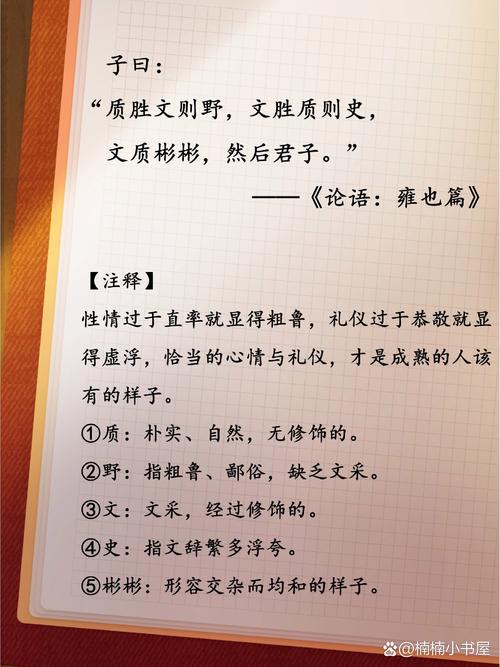 子曰：
“质胜文则野，文胜质则史，
文质彬彬，然后君子。”
——《论语：雍也篇》
【注释】
性情过于直率就显得粗鲁，礼仪过于恭敬就显
得虚浮，恰当的心情与礼仪，才是成熟的人该
有的样子。
①质：朴实、自然，无修饰的。
②野：指粗鲁、鄙俗，缺乏文采。
③文：文采，经过修饰的。
④史：指文辞繁多浮夸。
⑤彬彬：形容交杂而均和的样子。
@楠楠小书屋